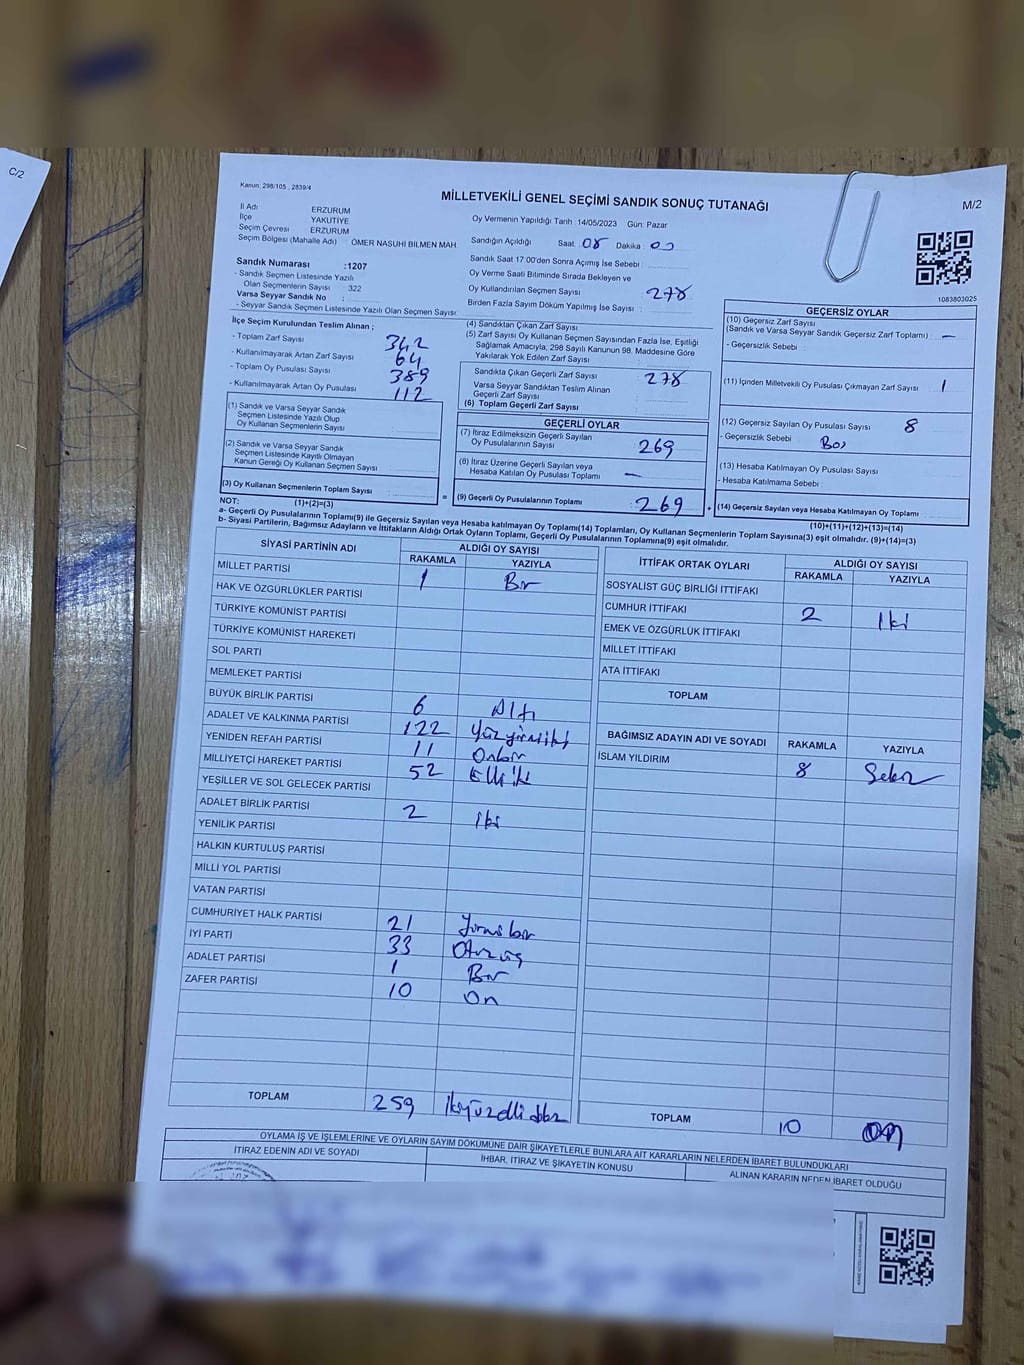 C/2
Kanun: 298/105 , 2839/4
MİLLETVEKİLİ GENEL SEÇİMİ SANDIK SONUÇ TUTANAĞI
M/2
İl Adı ERZURUM
İlçe YAKUTİYE
Seçim Çevresi ERZURUM
Seçim Bölgesi (Mahalle Adı) ÖMER NASUHİ BİLMEN MAH.
Sandık Numarası :1207
- Sandık Seçmen Listesinde Yazılı
Olan Seçmenlerin Sayısı 322
Varsa Seyyar Sandık No :
- Seyyar Sandık Seçmen Listesinde Yazılı Olan Seçmen Sayısı:
Oy Vermenin Yapıldığı Tarih :14/05/2023 Gün: Pazar
Sandığın Açıldığı Saat 08 Dakika 00
Sandık Saat 17:00'den Sonra Açılmış İse Sebebi :
Oy Verme Saati Bitiminde Sırada Bekleyen ve
Oy Kullandırılan Seçmen Sayısı 278
Birden Fazla Sayım Döküm Yapılmış İse Sayısı :
1083803025
İlçe Seçim Kurulundan Teslim Alınan ;
- Toplam Zarf Sayısı 342
- Kullanılmayarak Artan Zarf Sayısı 64
- Toplam Oy Pusulası Sayısı 389
- Kullanılmayarak Artan Oy Pusulası 112
(1) Sandık ve Varsa Seyyar Sandık
Seçmen Listesinde Yazılı Olup
Oy Kullanan Seçmenlerin Sayısı
(2) Sandık ve Varsa Seyyar Sandık
Seçmen Listesinde Kayıtlı Olmayan
Kanun Gereği Oy Kullanan Seçmen Sayısı
(3) Oy Kullanan Seçmenlerin Toplam Sayısı
(1)+(2)=(3)
(4) Sandıktan Çıkan Zarf Sayısı
(5) Zarf Sayısı Oy Kullanan Seçmen Sayısından Fazla İse, Eşitliği
Sağlamak Amacıyla, 298 Sayılı Kanunun 98. Maddesine Göre
Yakılarak Yok Edilen Zarf Sayısı
Sandıkta Çıkan Geçerli Zarf Sayısı 278
Varsa Seyyar Sandıktan Teslim Alınan
Geçerli Zarf Sayısı
(6) Toplam Geçerli Zarf Sayısı
GEÇERLİ OYLAR
(7) İtiraz Edilmeksizin Geçerli Sayılan
Oy Pusulalarının Sayısı 269
(8) İtiraz Üzerine Geçerli Sayılan veya
Hesaba Katılan Oy Pusulası Toplamı —
= (9) Geçerli Oy Pusulalarının Toplamı 269 +
GEÇERSİZ OYLAR
(10) Geçersiz Zarf Sayısı
(Sandık ve Varsa Seyyar Sandık Geçersiz Zarf Toplamı) —
- Geçersizlik Sebebi
(11) İçinden Milletvekili Oy Pusulası Çıkmayan Zarf Sayısı 1
(12) Geçersiz Sayılan Oy Pusulası Sayısı 8
- Geçersizlik Sebebi Boş
(13) Hesaba Katılmayan Oy Pusulası Sayısı
- Hesaba Katılmama Sebebi
(14) Geçersiz Sayılan veya Hesaba Katılmayan Oy Toplamı
(10)+(11)+(12)+(13)=(14)
NOT:
a- Geçerli Oy Pusulalarının Toplamı(9) ile Geçersiz Sayılan veya Hesaba katılmayan Oy Toplamı(14) Toplamları, Oy Kullanan Seçmenlerin Toplam Sayısına(3) eşit olmalıdır. (9)+(14)=(3)
b- Siyasi Partilerin, Bağımsız Adayların ve İttifakların Aldığı Ortak Oyların Toplamı, Geçerli Oy Pusulalarının Toplamına(9) eşit olmalıdır.
SİYASİ PARTİNİN ADI ALDIĞI OY SAYISI
RAKAMLA YAZIYLA
MİLLET PARTİSİ 1 Bir
HAK VE ÖZGÜRLÜKLER PARTİSİ
TÜRKİYE KOMÜNİST PARTİSİ
TÜRKİYE KOMÜNİST HAREKETİ
SOL PARTİ
MEMLEKET PARTİSİ
BÜYÜK BİRLİK PARTİSİ 6 Altı
ADALET VE KALKINMA PARTİSİ 122 Yüzyirmiiki
YENİDEN REFAH PARTİSİ 11 Onbir
MİLLİYETÇİ HAREKET PARTİSİ 52 Elliiki
YEŞİLLER VE SOL GELECEK PARTİSİ
ADALET BİRLİK PARTİSİ 2 iki
YENİLİK PARTİSİ
HALKIN KURTULUŞ PARTİSİ
MİLLİ YOL PARTİSİ
VATAN PARTİSİ
CUMHURİYET HALK PARTİSİ 21 Yirmibir
İYİ PARTİ 33 Otuzüç
ADALET PARTİSİ 1 Bir
ZAFER PARTİSİ 10 On
TOPLAM 259 ikiyüzellidokuz
İTTİFAK ORTAK OYLARI ALDIĞI OY SAYISI
RAKAMLA YAZIYLA
SOSYALİST GÜÇ BİRLİĞİ İTTİFAKI
CUMHUR İTTİFAKI 2 iki
EMEK VE ÖZGÜRLÜK İTTİFAKI
MİLLET İTTİFAKI
ATA İTTİFAKI
TOPLAM
BAĞIMSIZ ADAYIN ADI VE SOYADI RAKAMLA YAZIYLA
İSLAM YILDIRIM 8 Sekiz
TOPLAM 10 On
OYLAMA İŞ VE İŞLEMLERİNE VE OYLARIN SAYIM DÖKÜMÜNE DAİR ŞİKAYETLERLE BUNLARA AİT KARARLARIN NELERDEN İBARET BULUNDUKLARI
İTİRAZ EDENİN ADI VE SOYADI
İHBAR, İTİRAZ VE ŞİKAYETİN KONUSU
ALINAN KARARIN NEDEN İBARET OLDUĞU